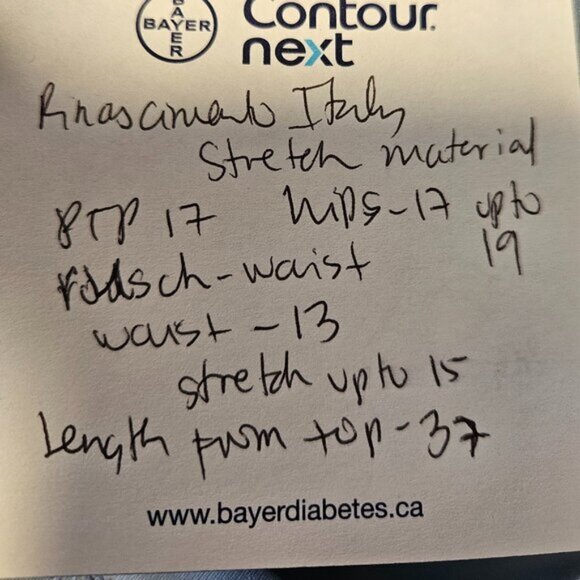 BAYER
BAYER
Contour
next
Rinascimento Italy
Stretch material
PTP 17 hips-17 upto
19
waist
waist - 13
stretch upto 15
Length from top - 37
www.bayerdiabetes.ca